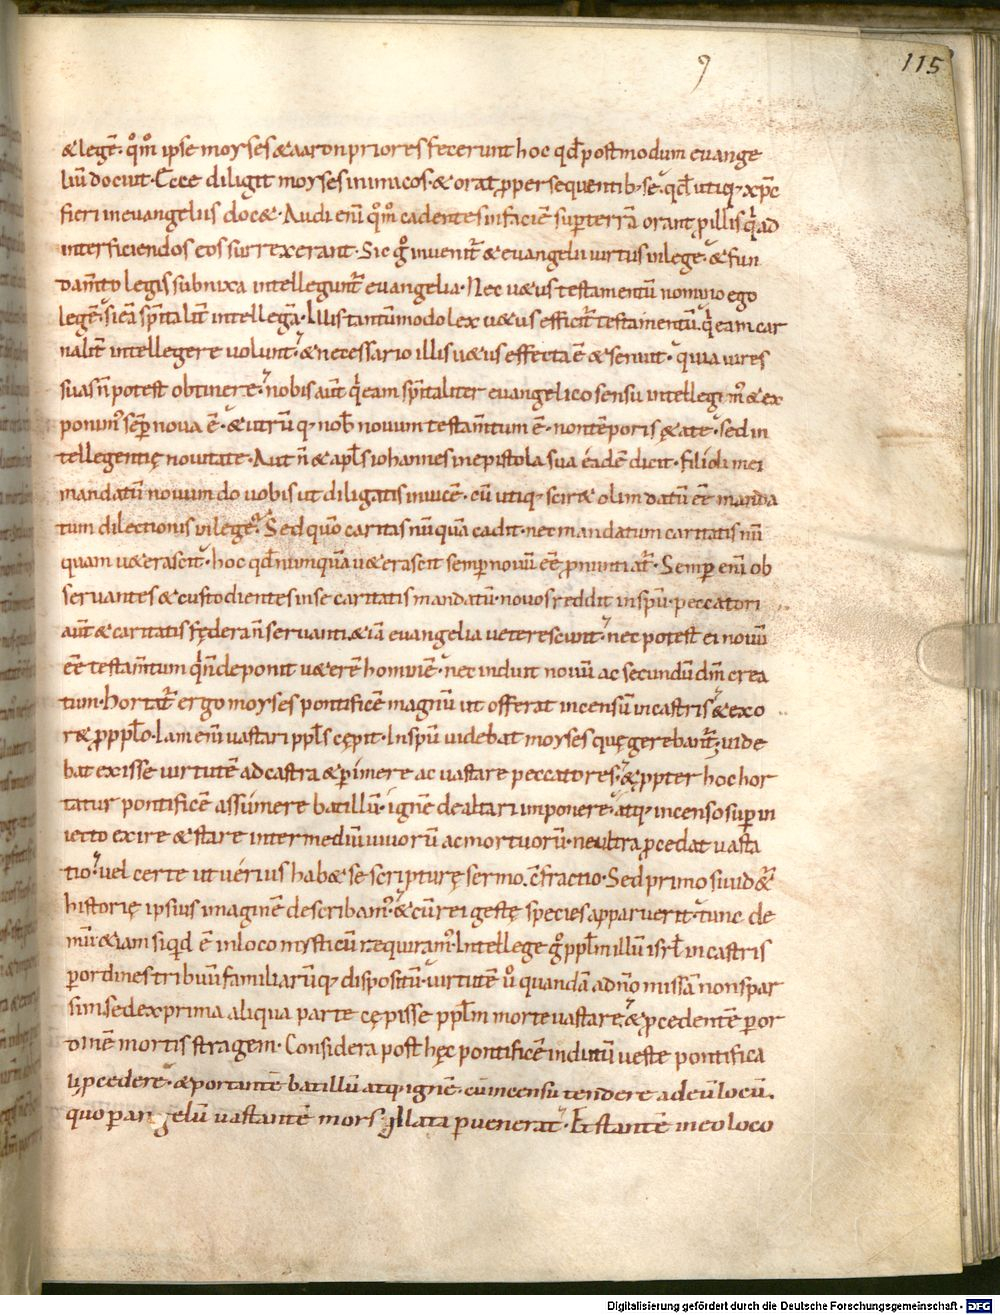 9
115
&legē· qm̄ ipse moyses &aaron priores fecerunt hoc qd̄ postmodum euange
liū docuit· Ecce diligit moyses inimicos· & orat ꝓ persequentib; se· qd̄ utiq; xp̄c
fieri in euangeliis doc&· Audi enī qm̄ cadentes in faciē sup terrā orant ꝓ illis qͥ ad
interficiendos eos surrexerant· Sic gͦ inuenit̄ & euangelii uirtus in lege· & fun
dam̄to legis subnixa intelleguntᷣ euangelia· Nec u&us testamentū nomino ego
legē· si eā spītalit̄ intellegā· Illis tantūmodo lex u&us efficitᷣ testamentū· qͥ eam car
nalit̄ intellegere uolunt· & necessario illis u&us effecta ē & senuit· quia uires
suas n̄ potest obtinere· nobis aūt qͥ eam spītaliter euangelico sensu intellegim; & ex
ponim; sēp noua ē· & utrūq; nob̄ nouum testam̄tum ē· non tēporis ętate· sed in
tellegentię nouitate· Aut n̄ & apl̄s iohannes in epistola sua eadē dicit· filioli mei
mandatū nouum do uobis ut diligatis inuicē· cū utiq; scir& olim datū eē manda
tum dilectionis in lege· Sed quō caritas nūquā cadit· nec mandatum caritatis nū
quam u&erascit· hoc qd̄ numquā u&erascit semper nouū eē pronuntiatᷣ· Semp enī ob
seruantes & custodientes in se caritatis mandatū· nouos reddit in sp̄u· peccatori
aūt & caritatis fędera n̄ seruanti &iā euangelia ueterescunt· nec potest ei nouū
eē testam̄tum qͥ n̄ deponit u&erē hominē· nec induit nouū ac secundū dm̄ crea
tum· Hortatᷣ ergo moyses pontificē magnū ut offerat incensū in castris & exo
r& ꝓ ppl̄o· Iam enī uastari ppl̄s cępit· In sp̄u uidebat moyses quę gerebantᷣ· uide
bat exisse uirtutē ad castra & pimere ac uastare peccatores· & ꝓpter hoc hor
tatur pontificē assumere batillū· ignē de altari imponere· atq; incenso sup in
iecto exire & stare inter mediū uiuorū ac mortuorū· ne ultra ꝓcedat uasta
tio· uel certe ut uerius hab& se scripturę sermo· c̄fractio· Sed primo si uid&ᷣ
historię ipsius imaginē describam;· & cū rei gestę species apparuerit· tunc de
mū &iam si qd̄ ē in loco mysticū requiram;· Intellege gͦ ppl̄m illū isrl̄ in castris
p ordines tribuū familiarūq; dispositū· uirtutē ū quandā a dn̄o missā non spar
sim sed ex prima aliqua parte cępisse ppl̄m morte uastare· & ꝓcedentē p or
dinē mortis stragem· Considera post hęc pontificē indutū ueste pontifica
li ꝓcedere· & portantē batillū atq; ignē· cū incensu tendere ad eū locū·
quo p angelū uastantē mors illata puenerat· Et stantē in eo loco
Digitalisierung gefördert durch die Deutsche Forschungsgemeinschaft - DFG